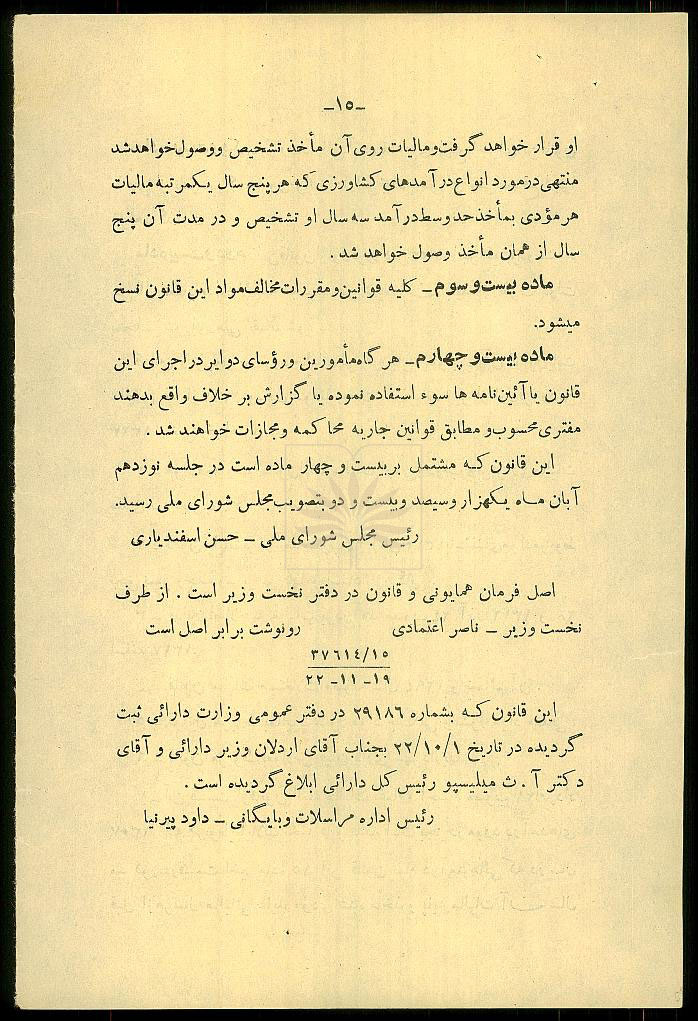 -۱۵-
او قرار خواهد گرفت ومالیات روی آن مأخذ تشخیص ووصول خواهد شد
منتهی در مورد انواع درآمدهای کشاورزی که هر پنج سال یکمرتبه مالیات
هر مؤدی بمأخذ حد وسط درآمد سه سال او تشخیص و در مدت آن پنج
سال از همان مأخذ وصول خواهد شد .
ماده بیست و سوم - کلیه قوانین ومقررات مخالف مواد این قانون نسخ
میشود.
ماده بیست و چهارم - هر گاه مأمورین ورؤسای دوایر در اجرای این
قانون یا آئین‌نامه ها سوء استفاده نموده یا گزارش بر خلاف واقع بدهند
مفتری محسوب و مطابق قوانین جاریه محاکمه ومجازات خواهند شد .
این قانون که مشتمل بر بیست و چهار ماده است در جلسه نوزدهم
آبان ماه یکهزار وسیصد وبیست و دو بتصویب مجلس شورای ملی رسید.
رئیس مجلس شورای ملی - حسن اسفندیاری
اصل فرمان همایونی و قانون در دفتر نخست وزیر است . از طرف
نخست وزیر - ناصر اعتمادی رونوشت برابر اصل است
۳۷۶۱٤/۱۵
۱۹-۱۱-۲۲
این قانون که بشماره ۲۹۱۸۶ در دفتر عمومی وزارت دارائی ثبت
گردیده در تاریخ ۲۲/۱۰/۱ بجناب آقای اردلان وزیر دارائی و آقای
دکتر آ . ث میلیسپو رئیس کل دارائی ابلاغ گردیده است .
رئیس اداره مراسلات وبایگانی - داود پیرنیا